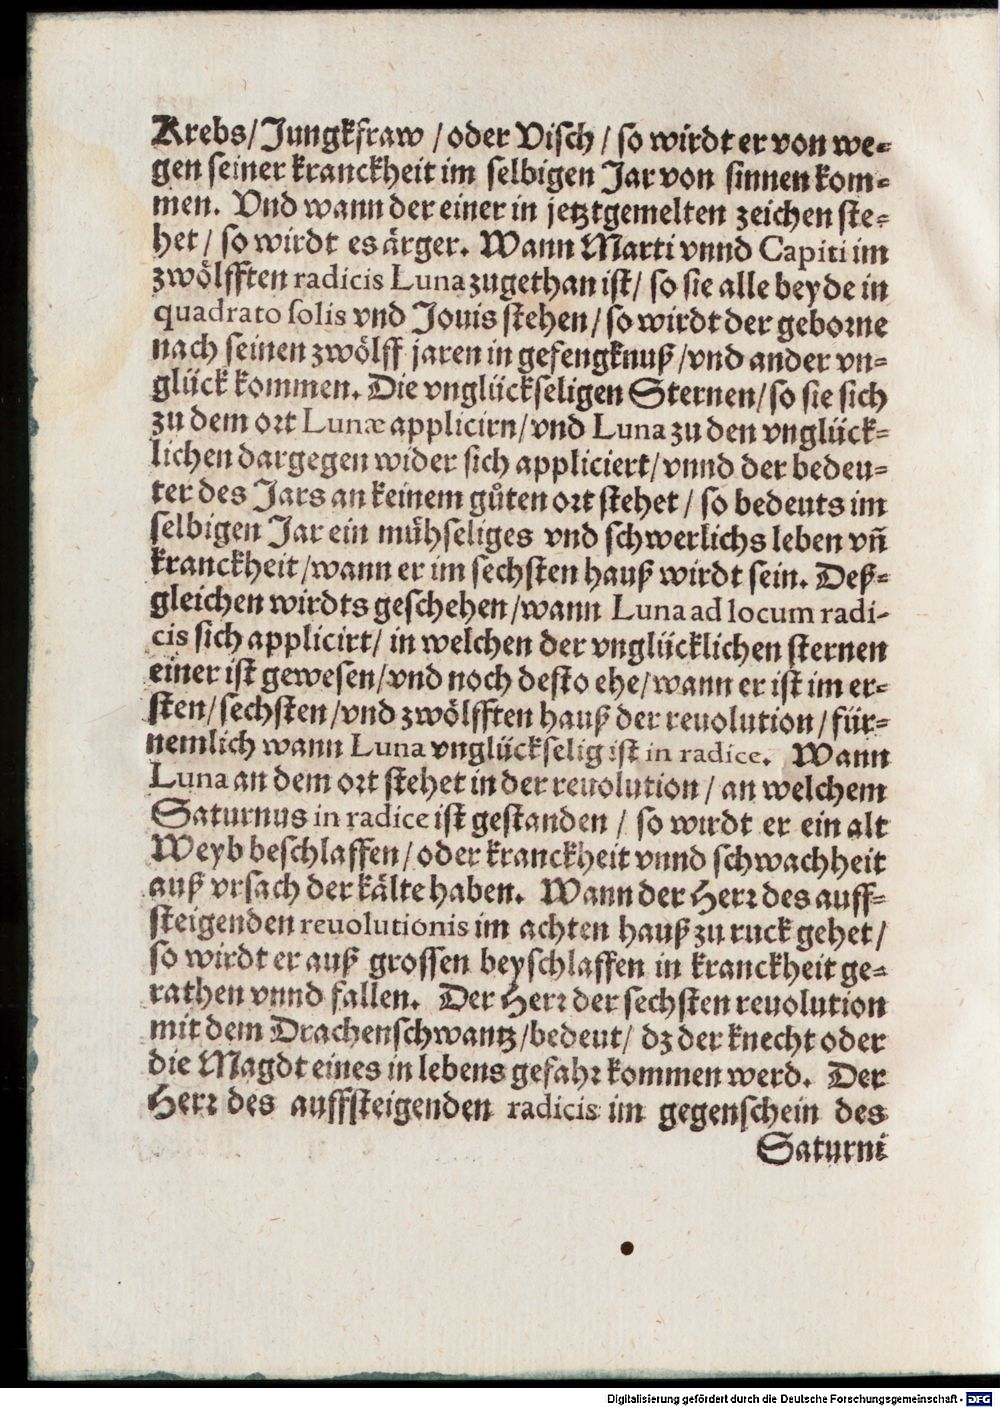 Krebs/Jungkfraw /oder Visch/ so wirdt er von we-
gen seiner kranckheit im selbigen Jar von sinnen kom-
men. Vnd wann der einer in jetztgemelten zeichen ste-
het/ so wirdt es ärger. Wann Marti vnnd Capiti im
zwölfften radicis Luna zugethan ist/ so sie alle beyde in
quadrato solis vnd Jouis stehen/so wirdt der geborne
nach seinen zwölff jaren in gefengknuß/vnd ander vn-
glück kommen. Die vnglückseligen Sternen/so sie sich
zu dem ort Lunæ applicirn/vnd Luna zu den vnglück-
lichen dargegen wider sich appliciert/vnnd der bedeu-
ter des Jars an keinem gůten ort stehet/ so bedeuts im
selbigen Jar ein mühseliges vnd schwerlichs leben vñ
kranckheit/wann er im sechsten hauß wirdt sein. Deß-
gleichen wirdts geschehen/wann Luna ad locum radi-
cis sich applicirt/ in welchen der vnglücklichen sternen
einer ist gewesen/vnd noch desto ehe/wann er ist im er-
sten/sechsten/vnd zwölfften hauß der reuolution/für-
nemlich wann Luna vnglückselig ist in radice. Wann
Luna an dem ort stehet in der reuolution/ an welchem
Saturnus in radice ist gestanden / so wirdt er ein alt
Weyb beschlaffen/oder kranckheit vnnd schwachheit
auß vrsach der kälte haben. Wann der Herr des auff-
steigenden reuolutionis im achten hauß zu ruck gehet/
so wirdt er auß grossen beyschlaffen in kranckheit ge-
rathen vnnd fallen. Der Herr der sechsten reuolution
mit dem Drachenschwantz/bedeut/ dz der knecht oder
die Magdt eines in lebens gefahr kommen werd. Der
Herr des auffsteigenden radicis im gegenschein des
Saturni
Digitalisierung gefördert durch die Deutsche Forschungsgemeinschaft - DFG